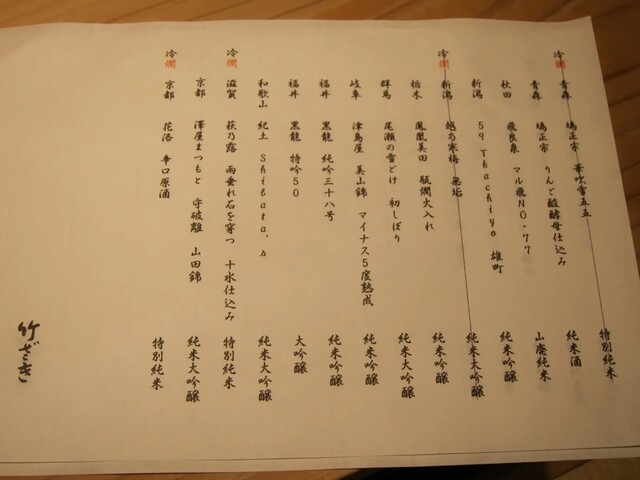 冷燗 青森 鳩正宗 華吹雪五五 特別純米
青森 鳩正宗 りんご酸酵母仕込み 純米酒
秋田 飛良泉 マル飛NO.77 山廃純米
新潟 59 Thachiyo 雄町 純米吟醸
冷燗 新潟 越乃寒梅 無垢 純米大吟醸
栃木 鳳凰美田 瓶燗火入れ 純米吟醸
群馬 尾瀬の雪どけ 初しぼり 純米大吟醸
岐阜 津島屋 美山錦 マイナス5度熟成 純米吟醸
福井 黒龍 純吟三十八号 純米吟醸
福井 黒龍 特吟50 大吟醸
和歌山 紀土 Shibata's 純米大吟醸
冷燗 滋賀 萩乃露 雨垂れ石を穿つ 十水仕込み 特別純米
京都 澤屋まつもと 守破離 山田錦 純米大吟醸
冷燗 京都 花洛 辛口原酒 特別純米
竹ざき